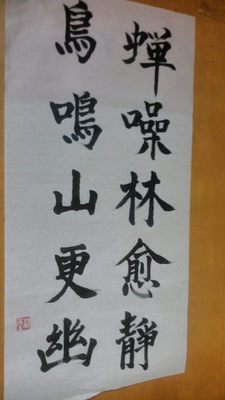 蝉噪林愈静
鳥鳴山更幽